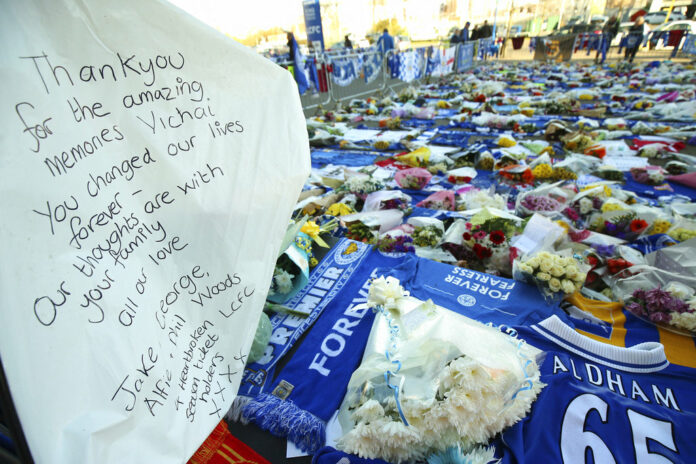 Thankyou
for the amazing
memories Vichai
You changed our lives
forever -
Our thoughts are with
your family
all our love
Jake, George,
Alfie + Phil Woods
4 Heartbroken
season ticket
holders LCFC
xxxx
LCFC
PREMIER
FOREVER
FOREVER
FEARLESS
ALDHAM
65